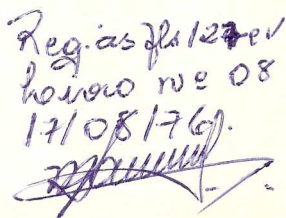 Reg. às fls 127 ev
livro nº 08
17/08/76.